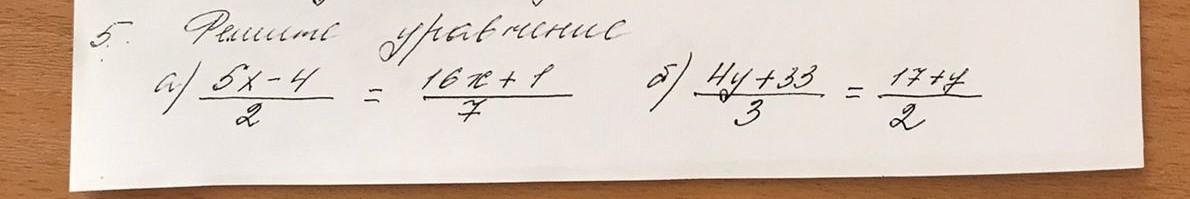 5. Решите уравнение
а) (5x-4)/2 = (16x+1)/7 б) (4y+33)/3 = (17+y)/2